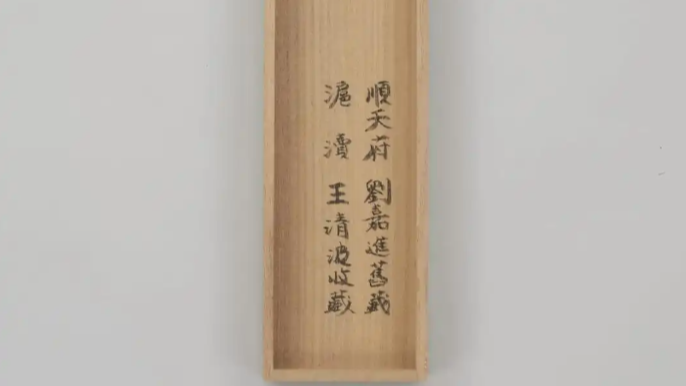 順天府劉嘉進舊藏
滬瀆王清波收藏